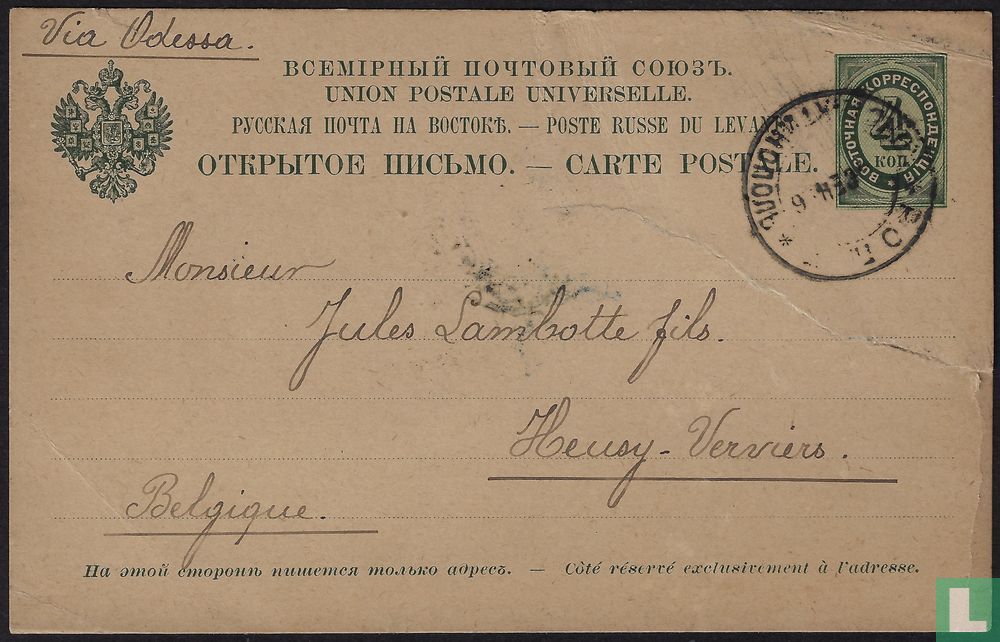 Via Odessa.
ВСЕМІРНЫЙ ПОЧТОВЫЙ СОЮЗЪ.
UNION POSTALE UNIVERSELLE.
РУССКАЯ ПОЧТА НА ВОСТОКѢ. — POSTE RUSSE DU LEVANT
ОТКРЫТОЕ ПИСЬМО. — CARTE POSTALE.
ВОСТОЧНАЯ КОРРЕСПОНДЕНЦІЯ
КОП.
Monsieur
Jules Lambotte fils.
Heusy-Verviers.
Belgique.
На этой сторонѣ пишется только адресъ. — Côté réservé exclusivement à l'adresse.
L